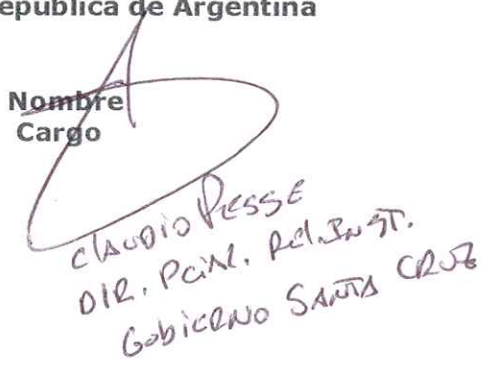 epública de Argentina
Nombre
Cargo
Claudio Pesse
DIR. Pcial. Rel. Inst.
Gobierno SANTA CRUZ